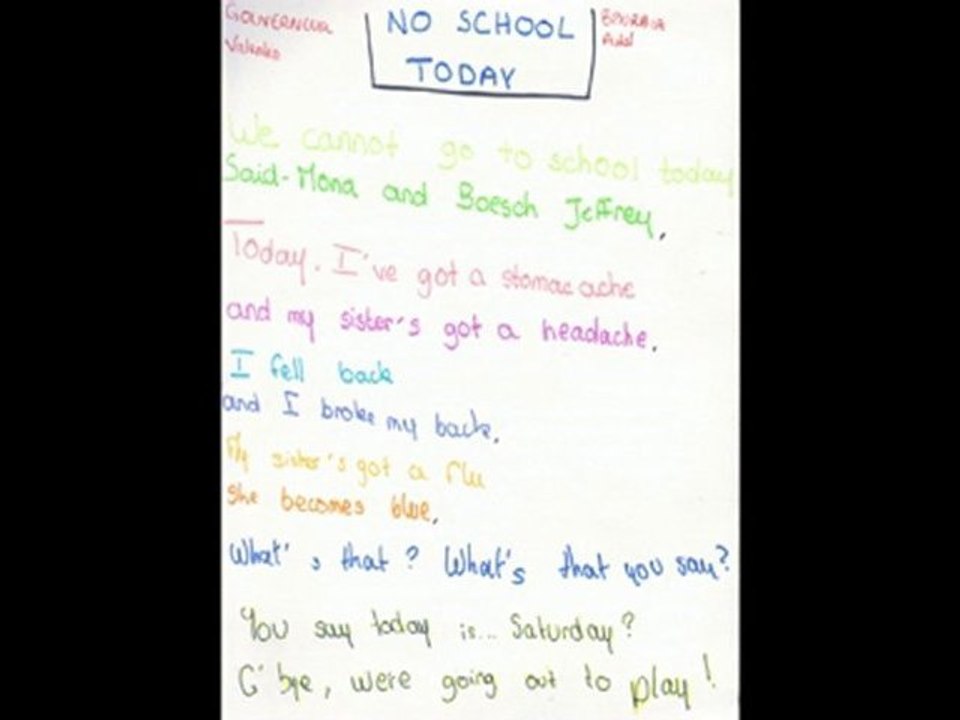 NO SCHOOL
TODAY
We cannot go to school today
Said-Mona and Boesch Jeffrey,
Today. I've got a stomac ache
and my sister's got a headache.
I fell back
and I broke my back.
My sister's got a flu
she becomes blue.
What's that? What's that you say?
You say today is... Saturday?
G'bye, were going out to play!